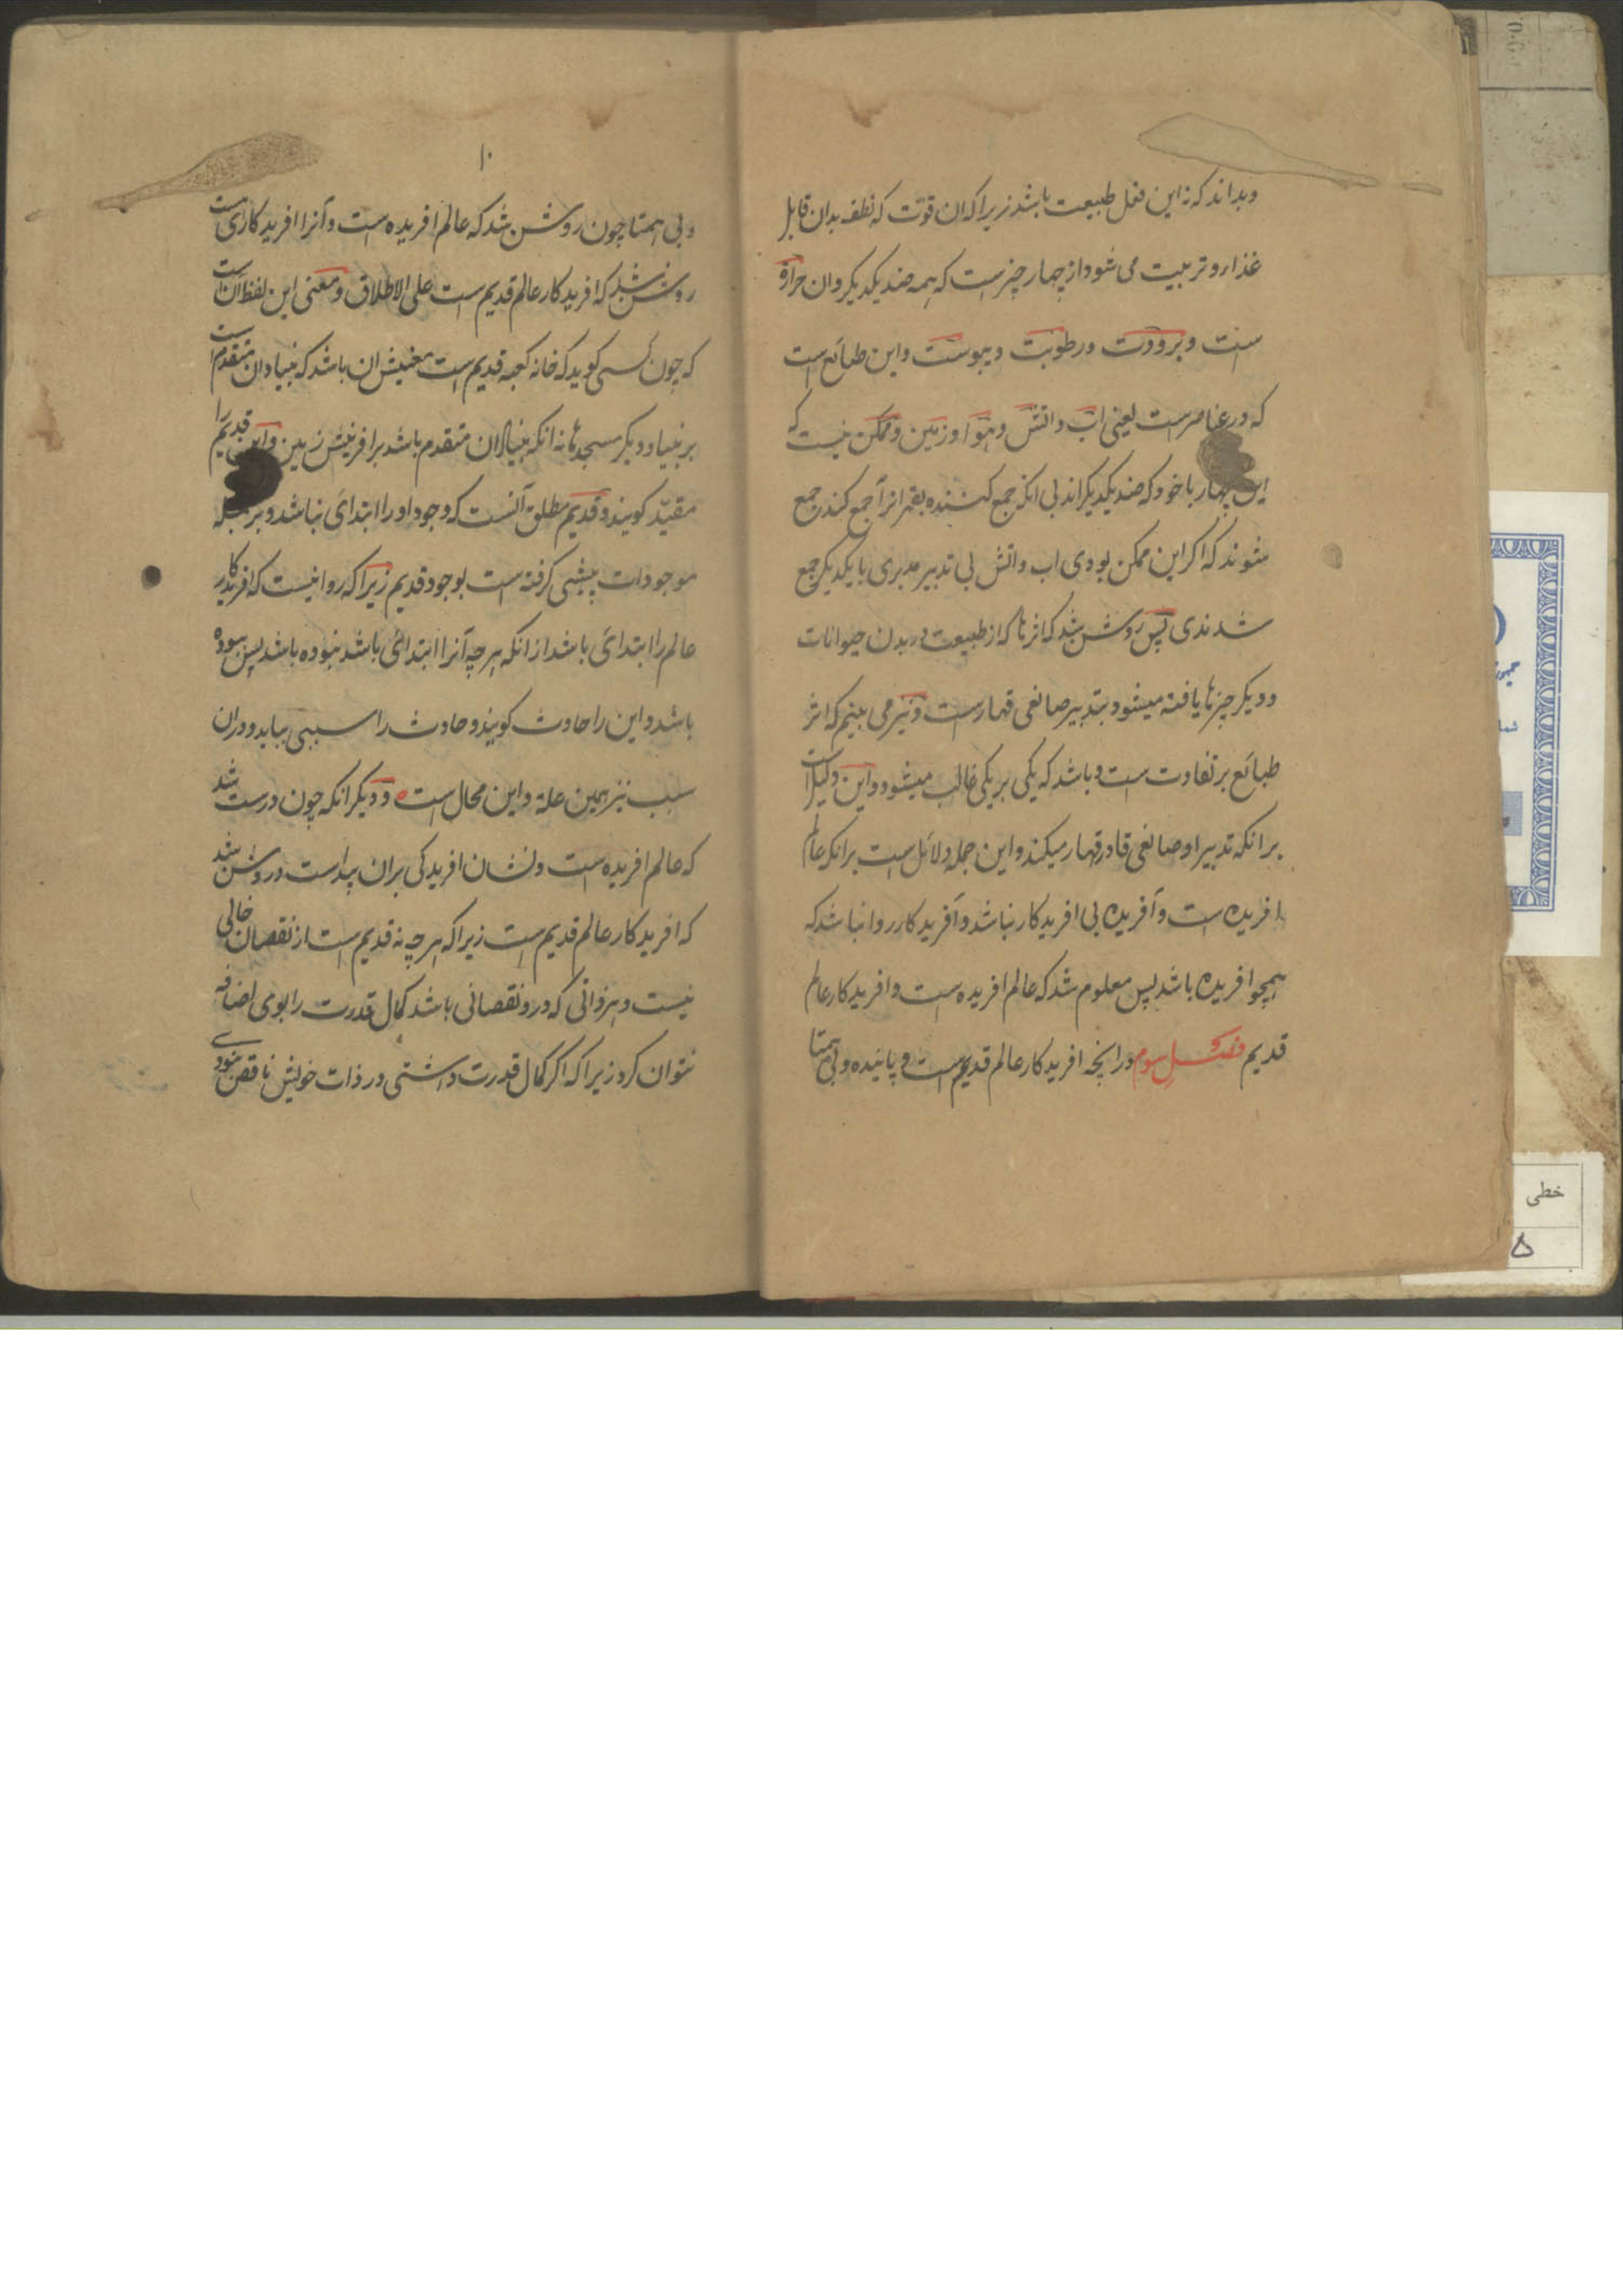 وبداند که نه این فعل طبیعت باشد زیرا که ان قوّت که نطفه بدان قابل
غذا و تربیت می شود از چهار چیزست که همه ضد یکدیکر وان حرارة
است و برودت و رطوبت و یبوست و این طبائع است
که در عناصرست یعنی اب و اتش و هوا و زمین و ممکن نیست که
این چهار با خود که ضد یکدیکراند بی انکه جمع کننده بقهر انرا جمع کند جمع
شوند که اکر این ممکن بودی اب و اتش بی تدبیر مدبری با یکدیکر جمع
شدندی پس روشن شد که اثرها که از طبیعت در بدن حیوانات
و دیکر چیزها یافته میشود بتدبیر صانعی قهارست و نیز می بینم که اثر
طبائع بر تفاوت است و باشد که یکی بر یکی غالب میشود و این دلیل است
بر انکه تدبیر او صانعی قادر قهار میکند و این جمله دلائل است بر انکه عالم
افریده است و آفریده بی افریدکار نباشد و آفریدکار روا نباشد که
همچو افریده باشد پس معلوم شد که عالم افریده است و افریدکار عالم
قدیم فصل سوم در انچه افریدکار عالم قدیم است و پاینده و بی همتا
۱۰
و بی همتا چون روشن شد که عالم افریده است و آنرا افریدکاری است
روشن شد که افریدکار عالم قدیم است علی الاطلاق و معنی این لفظ آن است
که چون کسی کوید که خانه کعبه قدیم است معنیش ان باشد که بنیاد ان متقدم است
بر بنیاد دیکر مسجدها نه انکه بنیاد ان متقدم باشد بر افرینش زمین و این قدیم را
مقیّد کویند و قدیم مطلق آنست که وجود او را ابتدای نباشد و بر جمله
موجودات پیشی کرفته است بوجود قدیم زیرا که روا نیست که افریدکار
عالم را ابتدای باشد از انکه هر چه آنرا ابتدائی باشد نبوده باشد پس ببوده
باشد و این را حادث کویند و حادث را سببی بباید و در ان
سبب نیز همین علة و این محال است و دیکر انکه چون درست شد
که عالم افریده است و نشان افریدکی بر ان پیداست و روشن شد
که افریدکار عالم قدیم است زیرا که هر چه نه قدیم است از نقصان خالی
نیست و هر ذاتی که درو نقصانی باشد کمال قدرت را بوی اضافه
نتوان کرد زیرا که اکر کمال قدرت داشتی در ذات خویش ناقص نبودی
خطی
۵